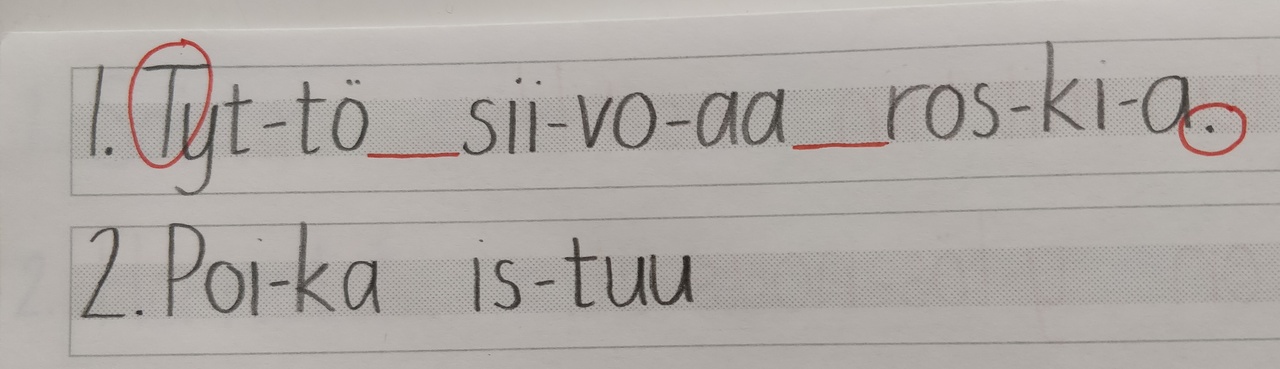 1. Tyt-tö__sii-vo-aa__ros-ki-a.
2. Poi-ka is-tuu